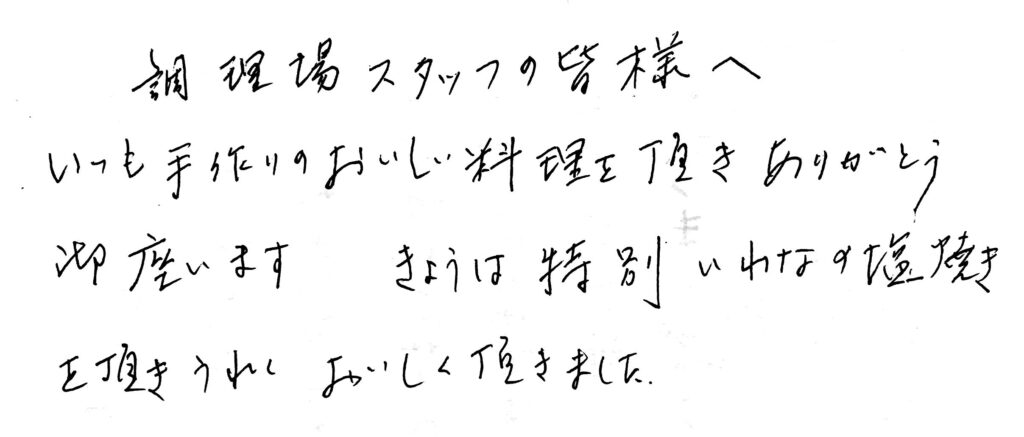 調理場スタッフの皆様へ
いつも手作りのおいしい料理を頂きありがとう
御座います きょうは特別いわなの塩焼き
を頂きうれしく おいしく頂きました.